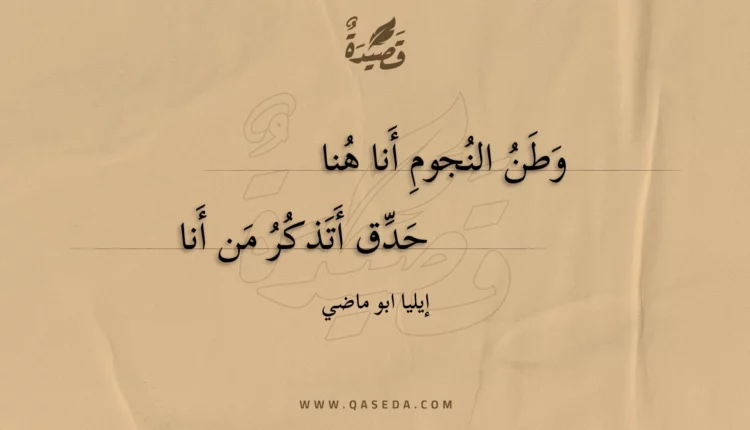 قَصِيدَةٌ
وَطَنُ النُجومِ أَنا هُنا
حَدِّق أَتَذكُرُ مَن أَنا
إيليا ابو ماضي
WWW.QASEDA.COM